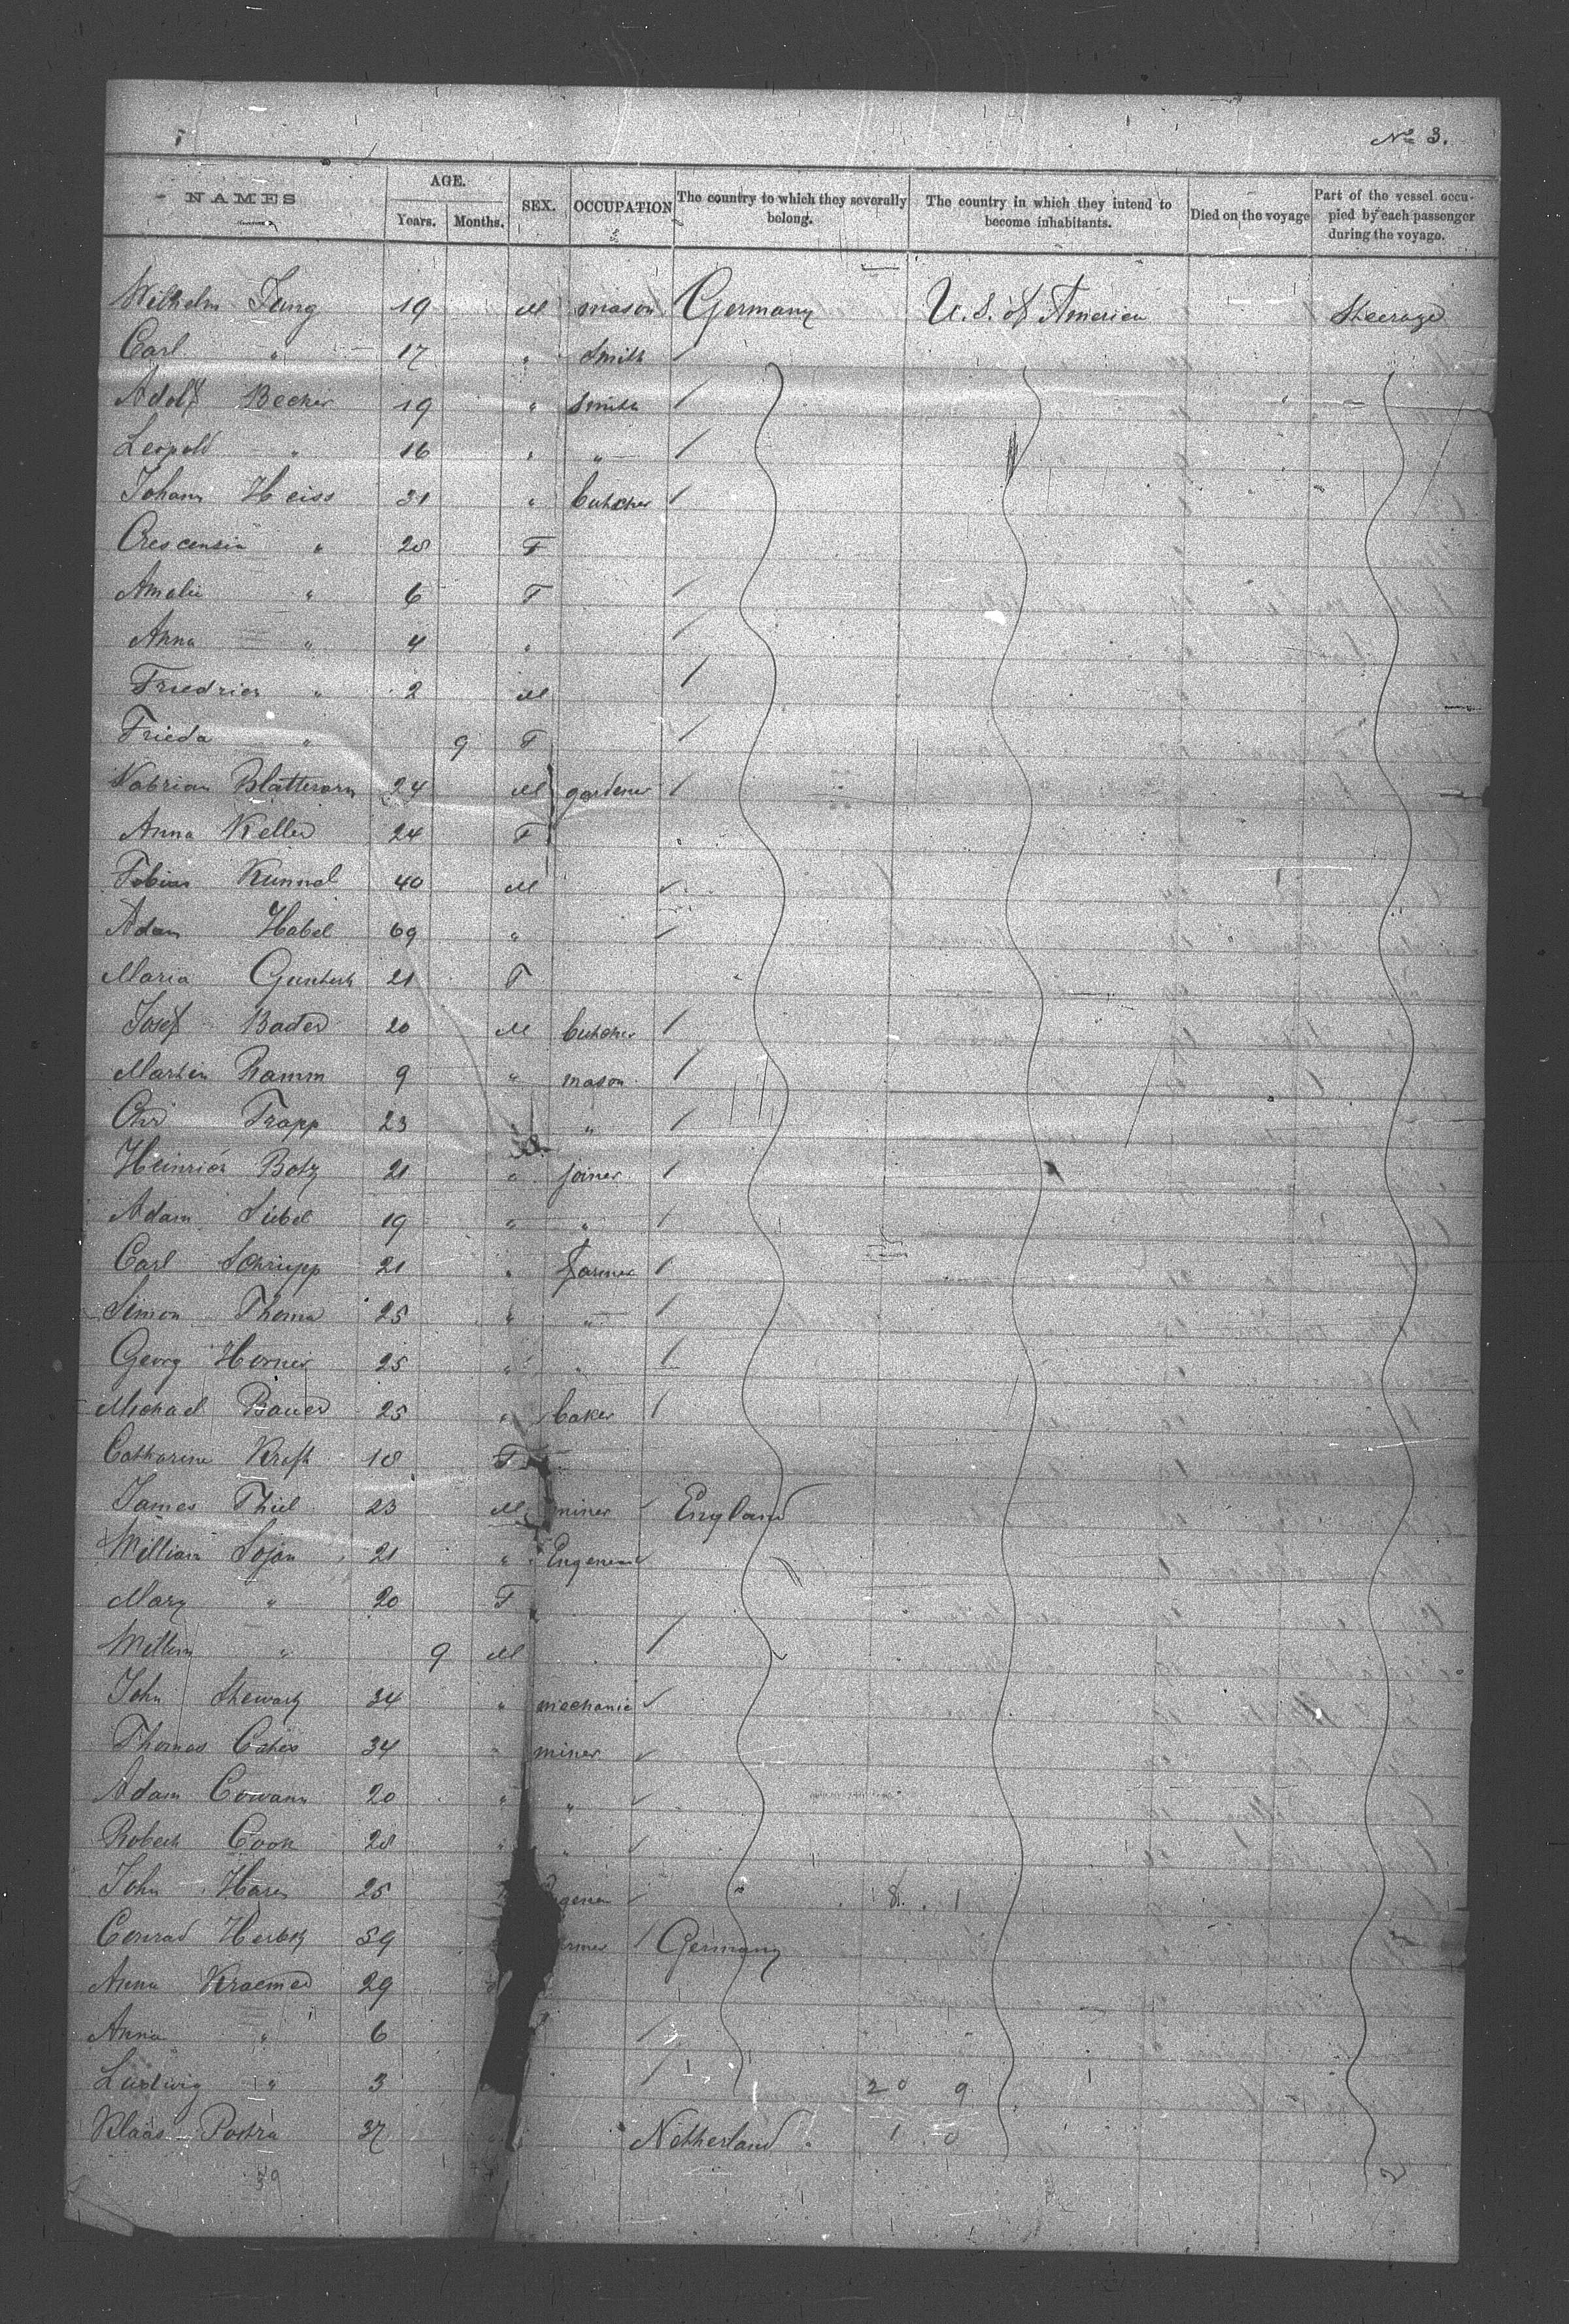 No 3.
NAMES AGE. Years. Months. SEX. OCCUPATION The country to which they severally belong. The country in which they intend to become inhabitants. Died on the voyage Part of the vessel occupied by each passenger during the voyage.
Wilhelm Jung 19 M mason Germany U. S. of America Steerage
Carl " 17 " Smith
Adolf Becker 19 " Smith
Leopold " 16 " "
Johann Heiss 31 " butcher
Crescensia " 28 F
Amalie " 6 F
Anna " 4 "
Friedrich " 2 M
Frieda " 9 F
24 M gardener
Anna Keller 24 F
Tobias Kunnel 40 M
Adam Habel 69 "
Maria 21 F
Josef Bader 20 M butcher
Martin Ramm 9 " mason
Trapp 23 "
Heinrich Botz 21 " joiner
Adam Siebel 19 " "
Carl Schrupp 21 " farmer
Simon Thoma 25 " "
Georg Horner 25 " "
Michael Bauer 25 " baker
Catharine Kraft 18 F
James Thiel 23 M miner England
William Sojan 21 " Engeneer
Mary " 20 F
William " 9 M
John Stewart 34 " mechanic
Thomas 34 " miner
Adam Cowann 20 " "
Robert Cook 28 " "
John 25
Conrad Herbst 59 Germany
Anna Kraemer 29
Anna " 6
Ludwig " 3 20 9
Klaas Postra 37 Netherland 1 0
39